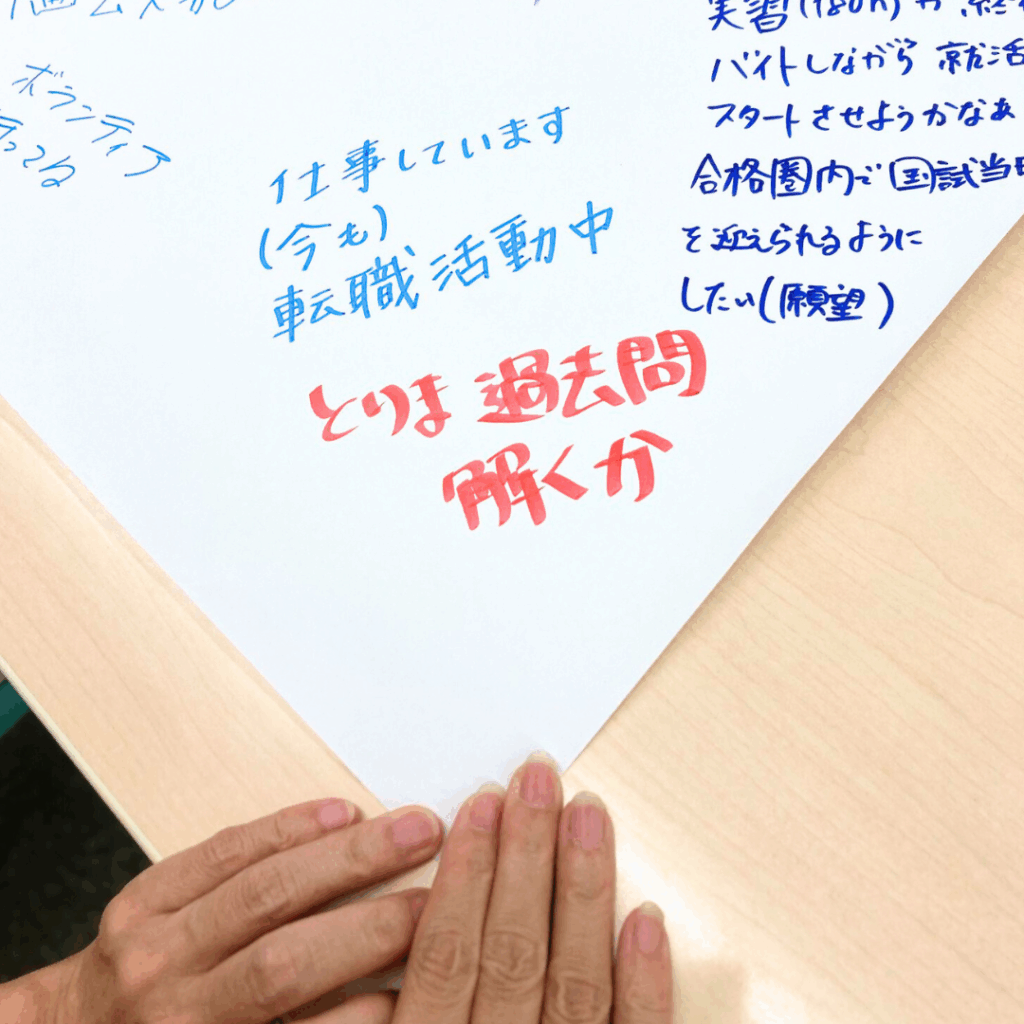 ボランティア
仕事しています
(今も)
転職活動中
とりま過去問
解くか
実習(180h)や
バイトしながら就活
スタートさせようかなぁ
合格圏内で国試当日
を迎えられるように
したい(願望)